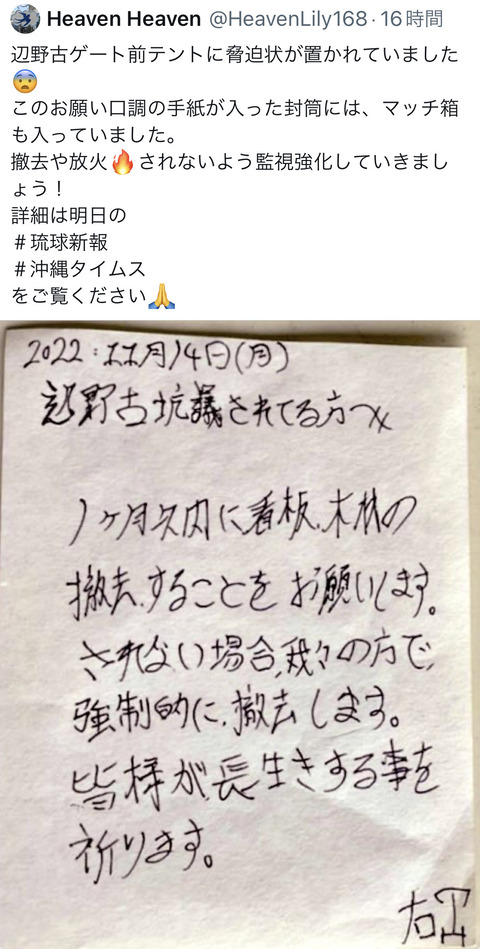 Heaven Heaven @HeavenLily168・16時間
辺野古ゲート前テントに脅迫状が置かれていました
😨
このお願い口調の手紙が入った封筒には、マッチ箱
も入っていました。
撤去や放火🔥されないよう監視強化していきまし
ょう！
詳細は明日の
＃琉球新報
＃沖縄タイムス
をご覧ください🙏
2022:11月14日(月)
辺野古坑議されてる方へ
1ヶ月以内に看板、木材の
撤去、することをお願いします。
されない場合、我々の方で、
強制的に、撤去します。
皆様が、長生きする事を
祈ります。
右